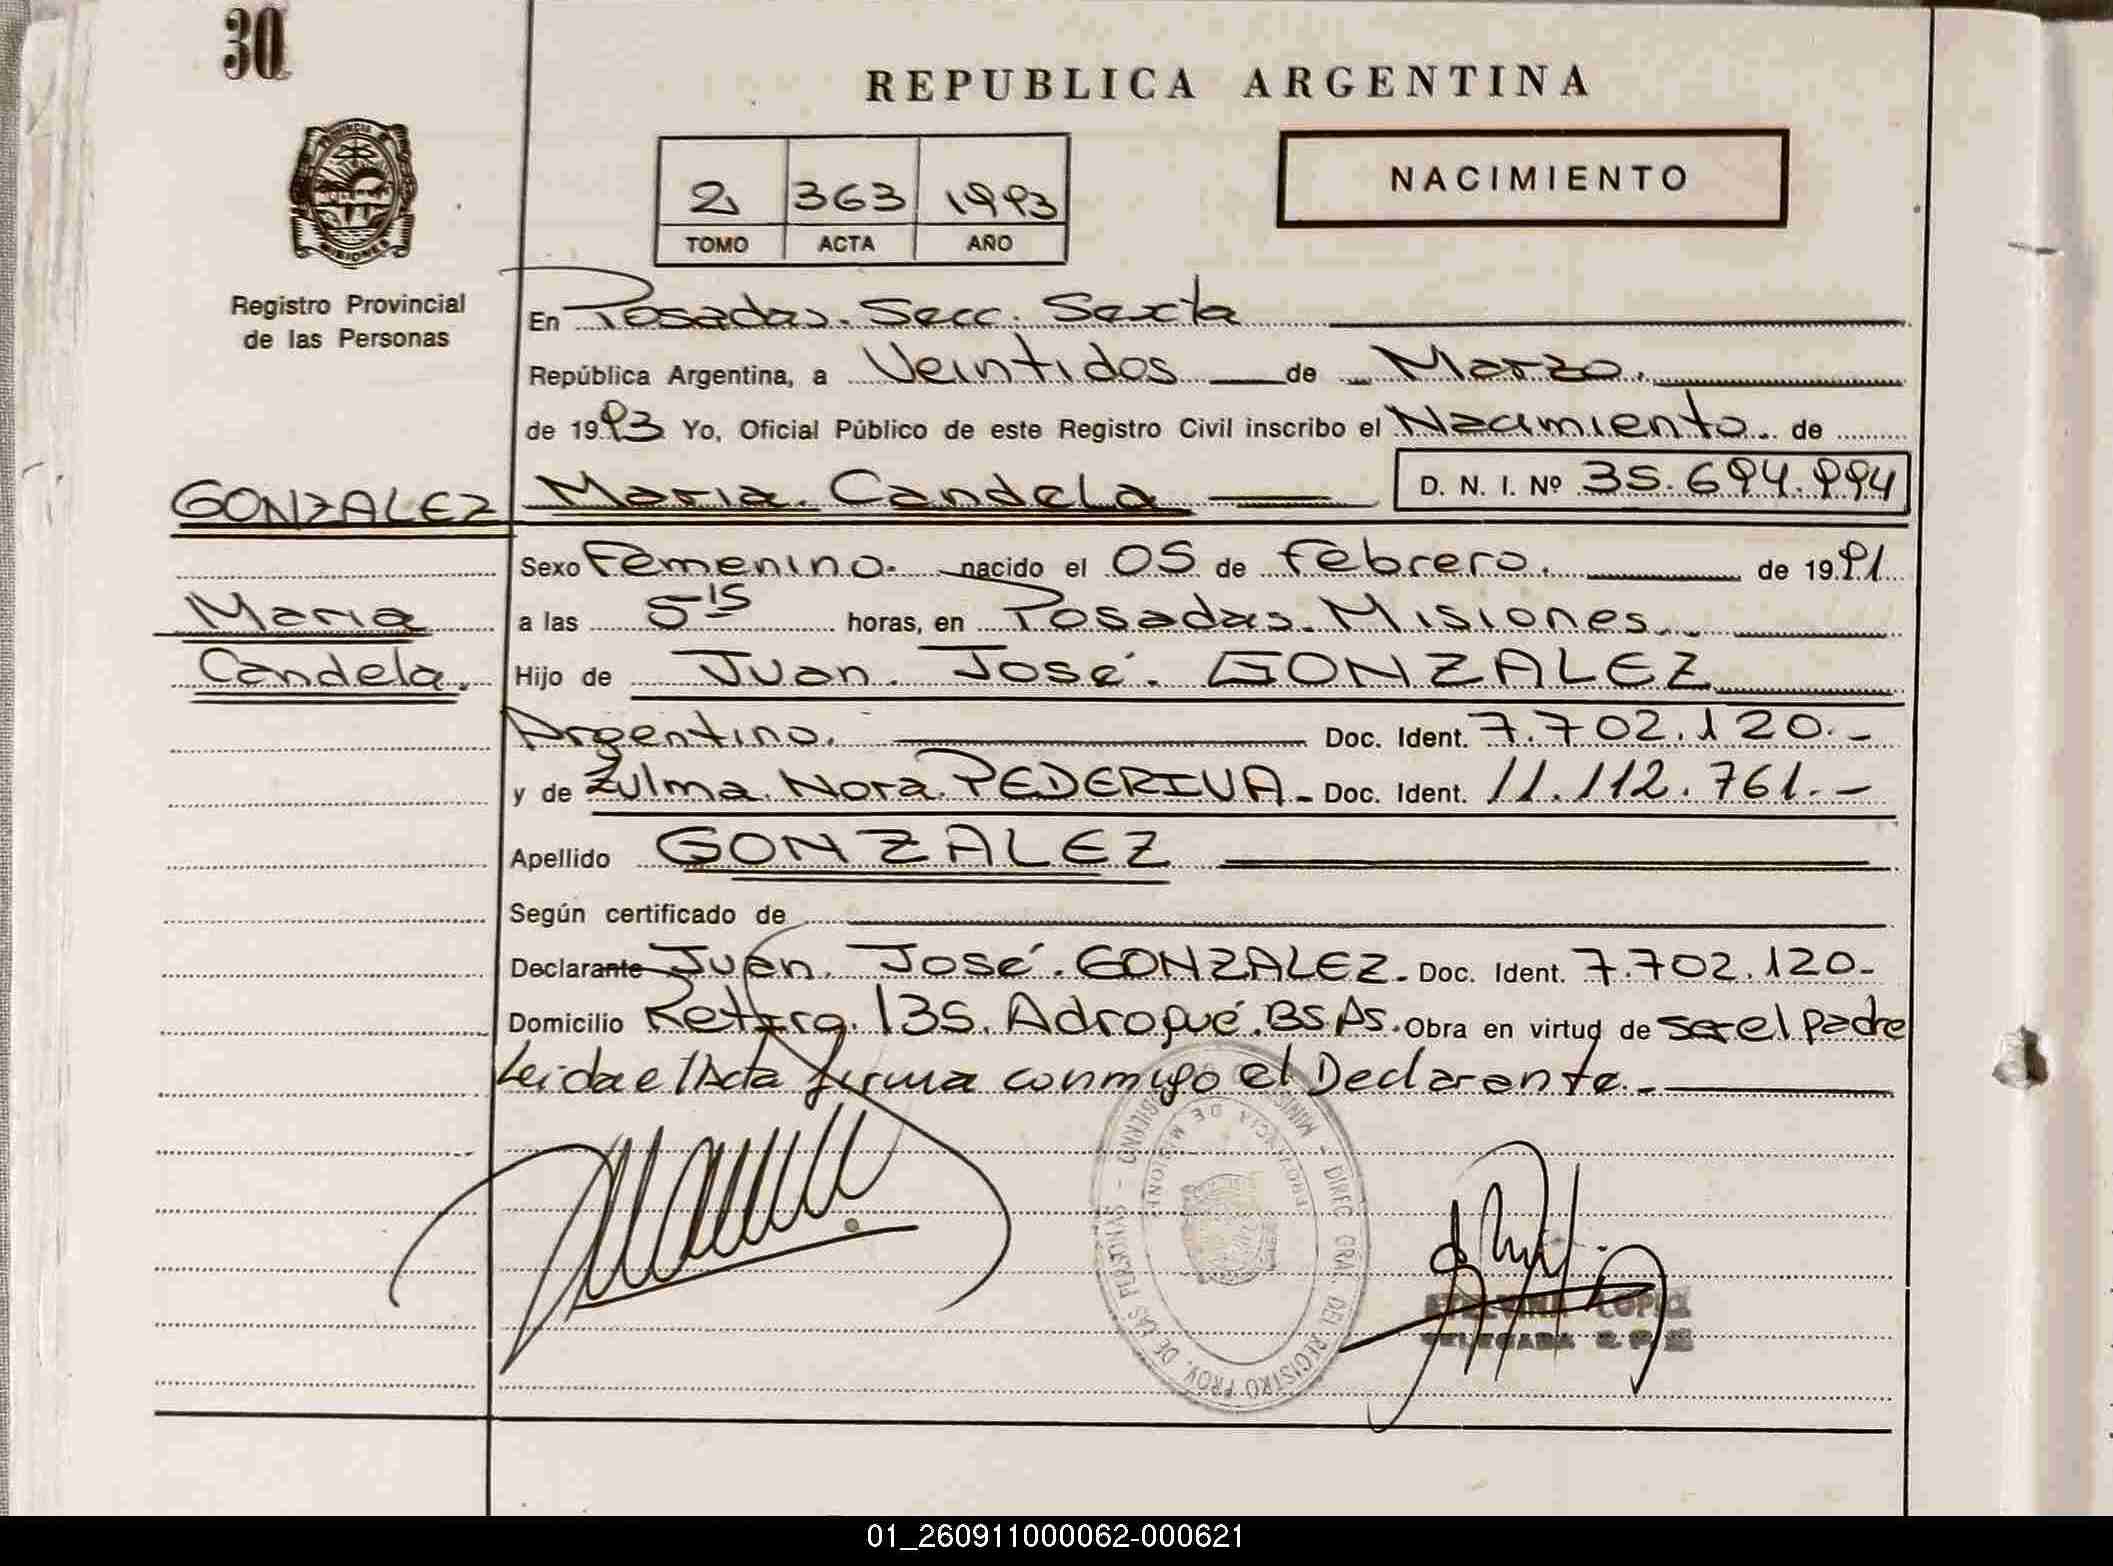 30
REPUBLICA ARGENTINA
NACIMIENTO
2 363 1993
TOMO ACTA AÑO
PROVINCIA
MISIONES
Registro Provincial
de las Personas
En Posadas. Secc. Sexta
República Argentina, a Veintidos de Marzo.
de 1993 Yo, Oficial Público de este Registro Civil inscribo el Nacimiento. de
GONZALEZ Maria. Candela D. N. I. Nº 35.694.994
Sexo Femenino. nacido el 05 de Febrero. de 1991
Maria a las 5 15 horas, en Posadas. Misiones.
Candela. Hijo de Juan. José. GONZALEZ
Argentino. Doc. Ident. 7.702.120.-
y de Zulma. Nora. PEDERIVA - Doc. Ident. 11.112.761.-
Apellido GONZALEZ
Según certificado de
Declarante Juan. José. GONZALEZ - Doc. Ident. 7.702.120-
Domicilio 135. Adrogué. BS.AS. Obra en virtud de ser el padre
Leida el Acta firma conmigo el Declarante.-
MINIS GOBIERNO - DIREC. GRAL. DEL REGISTRO PROV. DE LAS PERSONAS
PROVINCIA DE MISIONES
LOPEZ
DELEGADA R. P. P.
01_260911000062-000621